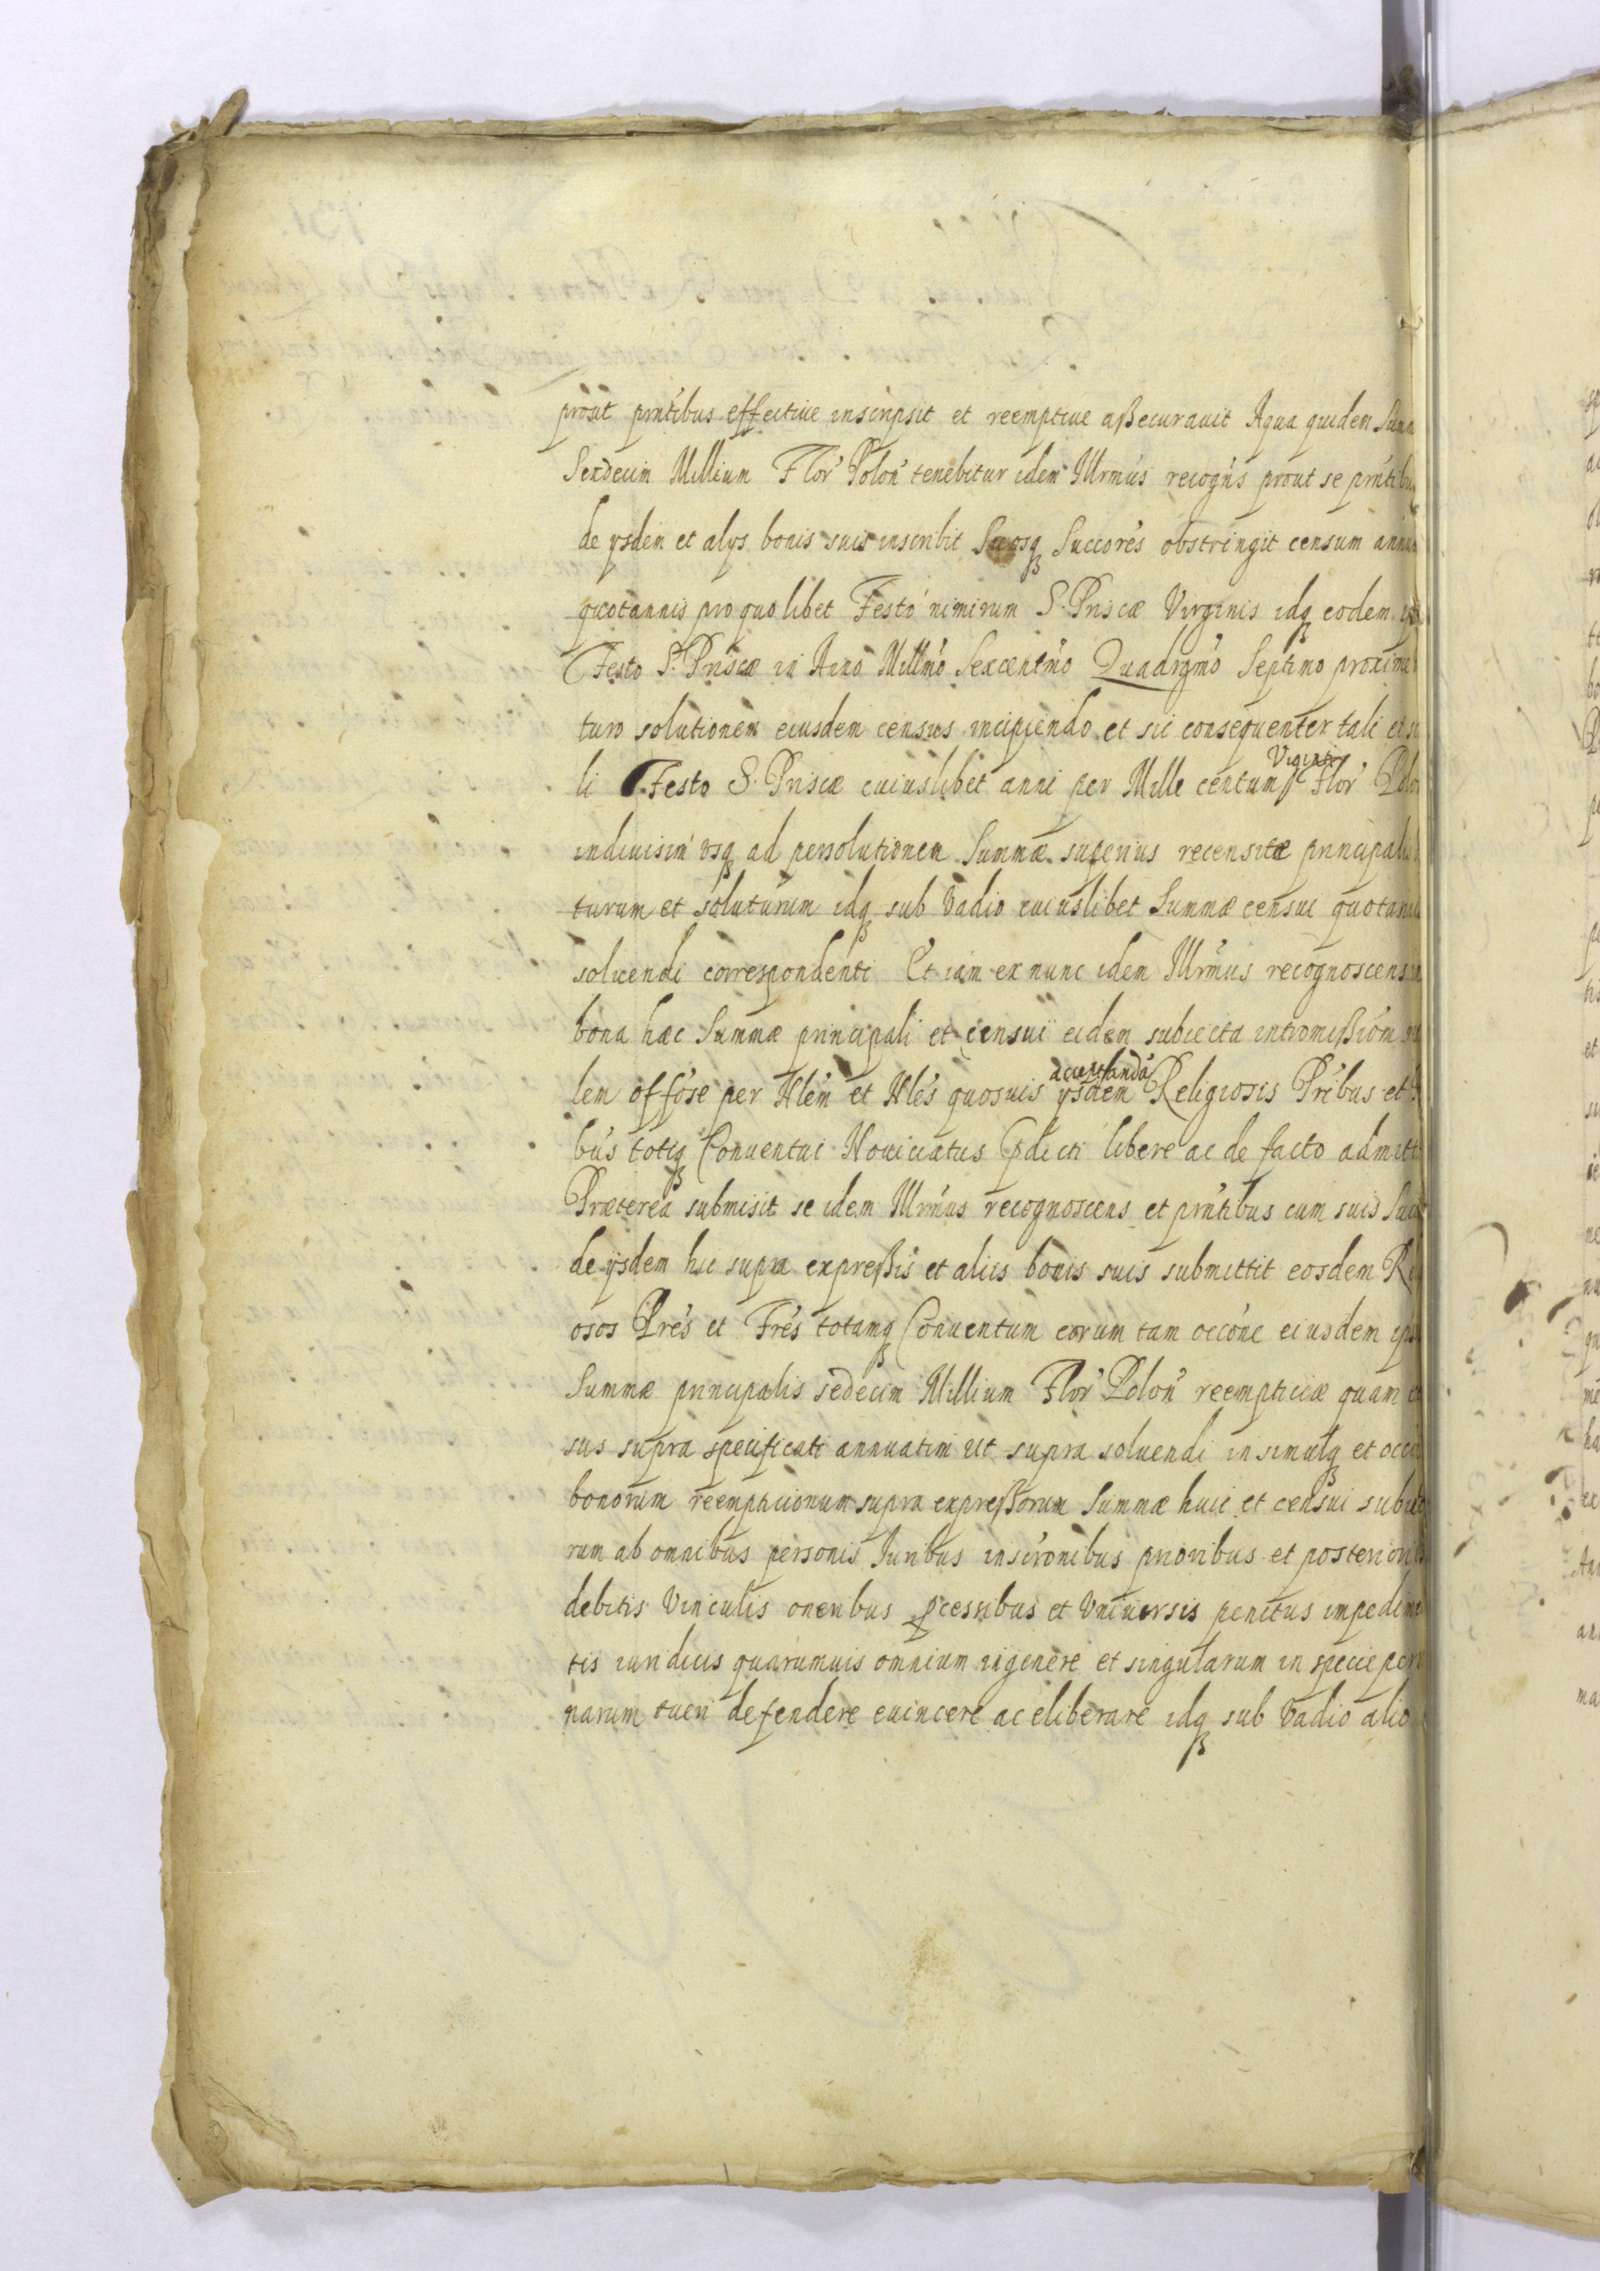 prout pn̄tibus effectiue inscripsit et reemptiue aßecurauit A qua quidem Sum̄a
Sexdecim Millium Flor̄ Polon̄ tenebitur idem Illrm̄us recogn̄s prout se pn̄tibus
de ysdem et alys bonis suis inscribit Suosq̨ Succores obstringit censum annuū
quotannis pro quolibet Festo nimirum S. Priscæ Virginis idq̨ eodem
Festo S. Priscæ in Anno Millm̄o Sexcentm̄o Quadrgm̄o Septimo proxime
turo solutionem eiusdem census incipiendo et sic consequenter tali et
li Festo S. Priscæ cuiuslibet anni per Mille centum Viginti Flor̄ Polon
indiuisim vsq̨ ad persolutionem Summæ superius recensitæ principalis
turum et soluturum idq̨ sub Vadio cuiuslibet Summæ censui quotannis
soluendi correspondenti Et iam ex nunc idem Illrm̄us recognoscens in
bona hæc Summæ principali et censui eidem subiecta intromißiōm
lem off̄ose per Mlēm et Mlēs quosuis accersandā ysdem Religiosis Prībus et
bus totiq̨ Conuentui Nouiciatus p̄dicti libere ac de facto admitt
Præterea submisit se idem Illrm̄us recognoscens et pn̄tibus cum suis Suc
de ysdem hic supra expreßis et aliis bonis suis submittit eosdem Re
osos Prēs et Frēs totamq̨ Conuentum eorum tam occōne eiusdem
Summæ principalis sedecim Millium Flor̄ Polon̄ reempticiæ quam
sus supra specificati annuatim ut supra soluendi insimulq̨ et
bonorum reempticionum supra expreßorum Summæ huic et censui
rum ab omnibus personis Iuribus inscrōnibus prioribus et posterioribus
debitis Vinculis oneribus ꝓcessibus et Vniuersis penitus impedimen
tis iuridicis quarumuis omnium in genere et singularum in specie per
narum tueri defendere euincere ac eliberare idq̨ sub Vadio alio